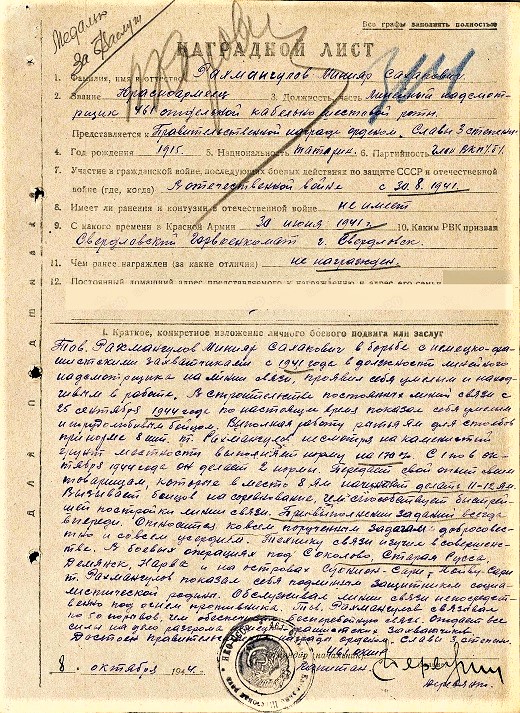 Медаль
за Б/Заслуги
Все графы заполнять полностью
НАГРАДНОЙ ЛИСТ
1. Фамилия, имя и отчество Рахмангулов Минияр Салакович
2. Звание Красноармеец 3. Должность, часть Линейный надсмот-
рщик 461 отдельной кабельно-шестовой роты.
Представляется к Правительственной награде орденом „Славы 3 степени
4. Год рождения 1915 5. Национальность татарин. 6. Партийность член ВКП/б/.
7. Участие в гражданской войне, последующих боевых действиях по защите СССР и отечественной
войне (где, когда) В отечественной войне с 30.8.1941.
8. Имеет ли ранения и контузии в отечественной войне не имеет
9. С какого времени в Красной Армии 30 июня 1941 г. 10. Каким РВК призван
Свердловский Горвоенкомат г. Свердловск.
11. Чем ранее награжден (за какие отличия) не награжден.
12. Постоянный домашний адрес представляемого к награждению и адрес его семьи
I. Краткое, конкретное изложение личного боевого подвига или заслуг
Тов. Рахмангулов Минияр Салакович в борьбе с немецко-фа-
шистскими захватчиками с 1941 года в должности линейного
надсмотрщика на линии связи, проявил себя умелым и наход-
чивым в работе. В строительстве постоянных линий связи с
25 сентября 1944 года по настоящее время показал себя умелым
и трудолюбивым бойцом. Выполняя работу рытья ям для столбов
при норме 8 шт. т. Рахмангулов несмотря на каменистый
грунт местности выполняет норму на 170%. С 1 по ок-
тября 1944 года он делает 2 нормы. Передает свой опыт своим
товарищам, которые в место 8 ям начинают делать 11-12 ям.
Вызывает бойцов на соревнование, чем способствует быстрей-
шей постройки линии связи. При выполнении заданий всегда
впереди. Относится ко всем порученным задачам добросовес-
тно и со всем усердием. Технику связи изучил в совершенс-
тве. В боевых операциях под Соколово, Старая Русса,
Демянск, Нарва и на островах
т. Рахмангулов показал себя подлинным защитником социа-
листической родины. Обслуживал линии связи непосредст-
венно под огнём противника. Тов. Рахмангулов связывал
по 50 порывов, чем обеспечил бесперебойную связь. Отдает все
силы на дело разгрома фашистских захватчиков.
Достоин правительственной награды орденом „Славы 3 степени.
Командир (начальник)
Капитан
8. октября 1944.